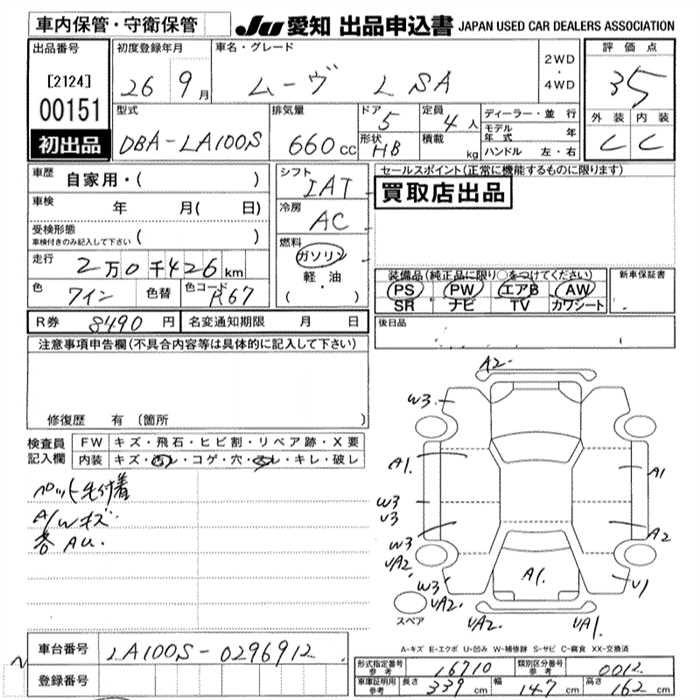 車内保管・守衛保管
JU 愛知 出品申込書 JAPAN USED CAR DEALERS ASSOCIATION
出品番号
[2124]
00151
初出品
初度登録年月
26 9月
車名・グレード
ムーヴ L SA
2WD
・
4WD
評価点
3.5
外装 内装
C C
型式
DBA-LA100S
排気量
660cc
ドア
5
形状
HB
定員
4人
積載
kg
ディーラー・並行
モデル年式 年
ハンドル 左・右
車歴 自家用・( )
車検 年 月( 日)
受検形態
車検付きのみ記入して下さい ( )
走行 2万0千426km
色 ワイン 色替 色コード R67
シフト
IAT
冷房
AC
燃料
ガソリン
軽・油
( )
セールスポイント(正常に機能するものに限ります)
買取店出品
装備品(純正品に限り○をつけてください)
PS PW エアB AW
SR ナビ TV カワシート
新車保証書
後日品
R券 8490円 名変通知期限 月 日
注意事項申告欄(不具合内容等は具体的に記入して下さい)
修復歴 有(箇所 )
検査員記入欄
FW キズ・飛石・ヒビ割・リペア跡・X要
内装 キズ・汚レ・コゲ・穴・スレ・キレ・破レ
ペット毛付着
A/Wキズ
各AU.
A2.
W3
A1.
A1
W3
U3
W3
UA2
A2
W3
UA2.
A1.
U1
UA2.
UA1.
スペア
A-キズ E-エクボ U-凹み W-補修跡 S-サビ C-腐食 XX-交換済
車台番号 LA100S-0296912
登録番号
形式指定番号参考 16710 類別区分番号参考 0012
車庫証明用参考 長さ 339cm 幅 147cm 高さ 162cm